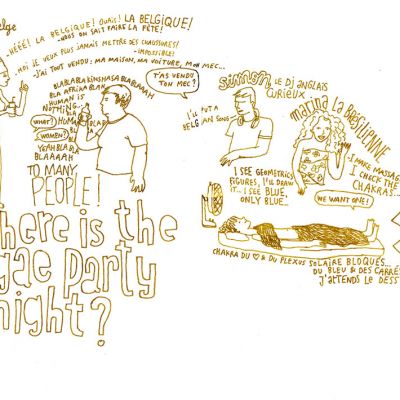 elge
-HÉÉÉ! LA BELGIQUE! OUAIS! LA BELGIQUE!
-NOUS ON SAIT FAIRE LA FÊTE!
-MOI JE VEUX PLUS JAMAIS METTRE DES CHAUSSURES!
-IMPOSSIBLE!
-J'AI TOUT VENDU: MA MAISON, MA VOITURE, MON MEC...
T'AS VENDU
TON MEC?
BLABLABLAKINSHASABLABLAAAH
BLA AFRIKA BLAH
HUMAN IS
NOTHING...
BLA
WHAT?
HUMAN
BLA
WOMEN?
YEAH BLA BLA
BLAAAAH
TO MANY
PEOPLE!
here is the
gae party
night?
simon LE DJ ANGLAIS
CURIEUX
I'LL PUT A
BELGIAN SONG
I SEE GEOMETRICS
FIGURES, I'LL DRAW
IT... I SEE BLUE,
ONLY BLUE...
marina LA BRÉSILIENNE
I MAKE MASSAG
I CHECK THE
CHAKRAS...
WE WANT ONE!
CHAKRA DU ♡ & DU PLEXUS SOLAIRE BLOQUÉS...
DU BLEU & DES CARRÉS
J'ATTENDS LE DESS